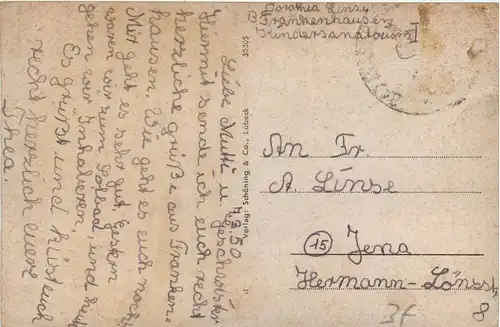 Dorothea Linse
B Frankenhausen
Kindersanatorium
Liebe Mutti u. Geschwister
Hiermit sende ich euch recht
herzliche Grüße aus Franken-
hausen. Wie geht es euch noch
Mir geht es sehr gut. Gestern
waren wir zum Solbad, und heute
gehen wir Inhalieren.
Es grüßt und küßt euch
recht herzlich eure
Thea.
30505
Verlag: Schöning & Co., Lübeck
An Fr.
A. Linse
15 Jena
Hermann-Lönsstr
8
37